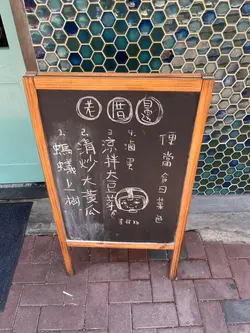 老
便當
日菜色
1. 螞蟻上樹
2. 清炒大黃瓜
3. 涼拌大豆菜
4. 滷蛋